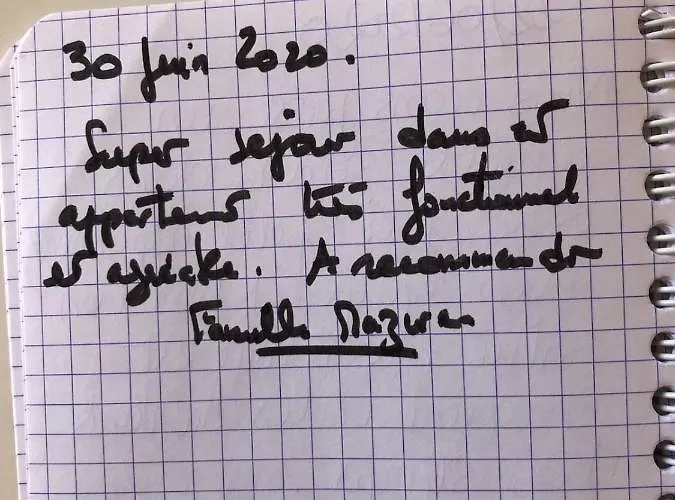 30 Juin 2020.
Super sejour dans cet
appartement très fonctionnel
et agréable. A recommander
Famille